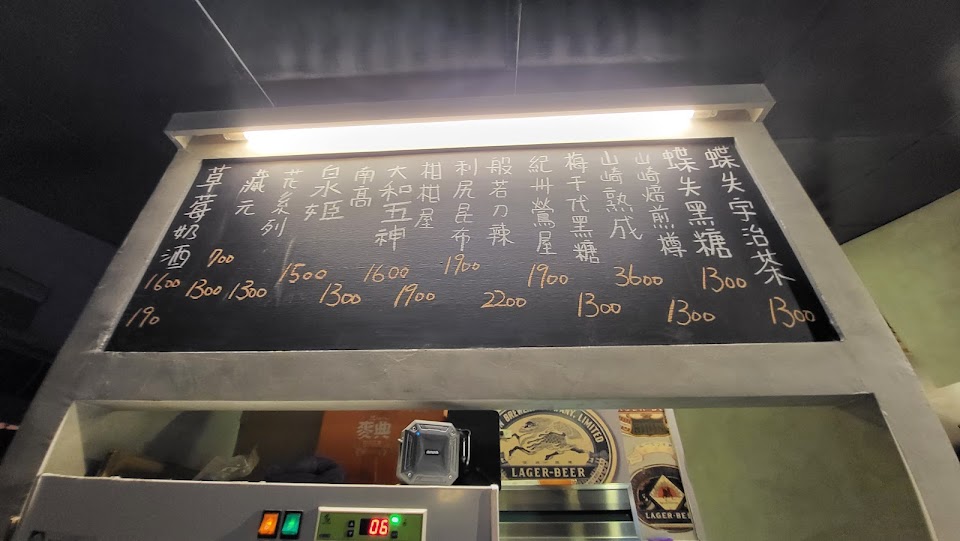 蝶失宇治茶
1300
蝶失黑糖
1300
山崎焙煎樽
1300
山崎熟成
3600
梅干代黑糖
1300
紀州鶯屋
1900
般若刀辣
2200
利尻昆布
1900
柑柑屋
1900
大和五神
1600
南高
1300
泉姬
1500
花系列
1300
藏元
1300
700
草莓奶酒
1600
190
麥典
LIMITED
LAGER-BEER
LAGER-BEE
06